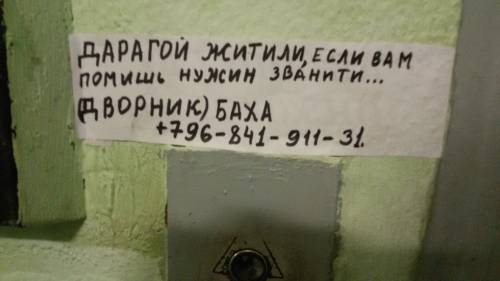 ДАРАГОЙ ЖИТИЛИ, ЕСЛИ ВАМ
ПОМИШЬ НУЖИН ЗВАНИТИ...
(ДВОРНИК) БАХА
+796-841-911-31.